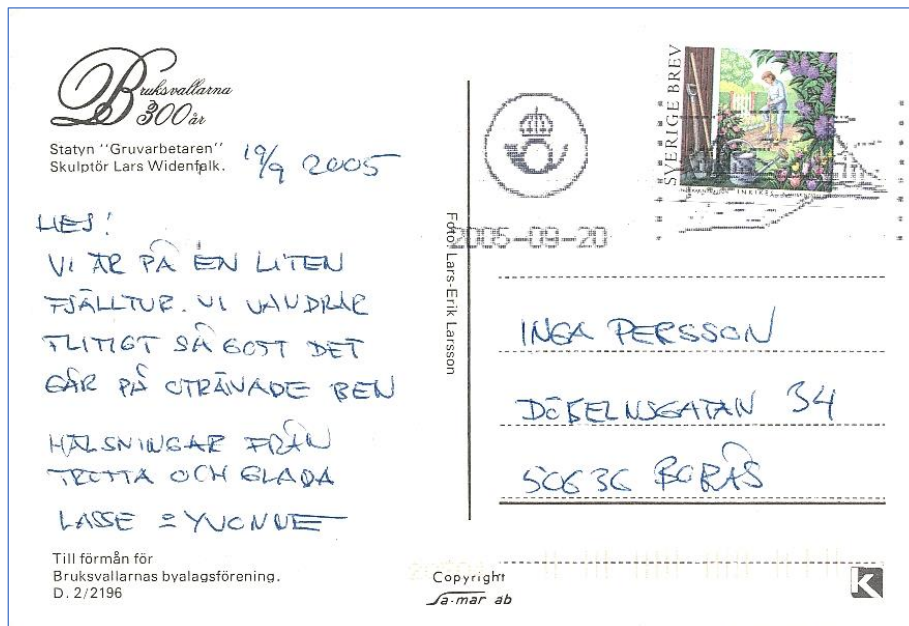 Bruksvallarna
300 år
Statyn "Gruvarbetaren"
Skulptör Lars Widenfalk.
19/9 2005
HEJ!
VI ÄR PÅ EN LITEN
FJÄLLTUR. VI VANDRAR
FLITIGT SÅ GOTT DET
GÅR PÅ OTRÄNADE BEN
HÄLSNINGAR FRÅN
TRÖTTA OCH GLADA
LASSE = YVONNE
Till förmån för
Bruksvallarnas byalagsförening.
D. 2/2196
Foto Lars-Erik Larsson
Copyright
Sa-mar ab
K
SVERIGE BREV
2005-09-20
INGA PERSSON
DÖBELNSGATAN 34
50636 BORÅS